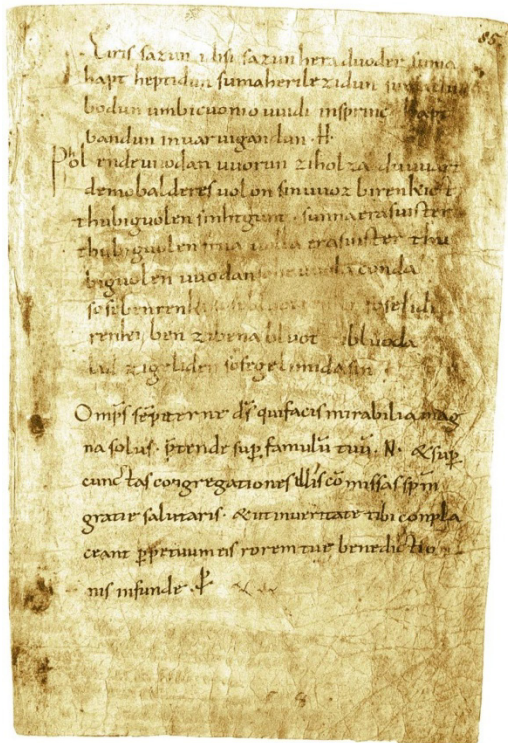 85
Eiris sazun idisi sazun hera duoder suma
hapt heptidun sumaherilezidun sumaclu
bodun umbicuonio uuidi insprinc hapt
bandun inuar uigandun · H ·
Phol endeuuodan uuorun ziholza du uuart
demobalderes uolon sinuuoz birenkict
thubiguolen sinhtgunt · sunnaerasuister
thubiguolen friia uolla erasuister thu
biguolen uuodan sohe uuolaconda
sosebenrenki sosebluotrenki soselidi
renki ben zibena bluot zibluoda
lid zigeliden sosegelimidasin
Omps sēpiterne ds̄ quifacis mirabilia mag
na solus · p̄tende sup famulū tuū · N · & sup
cunctas congregationes illis cō missas spm̄
gratie salutaris · & ut inueritate tibi conpla
ceant ppetuum eis rorem tue benedictio
nis infunde · P